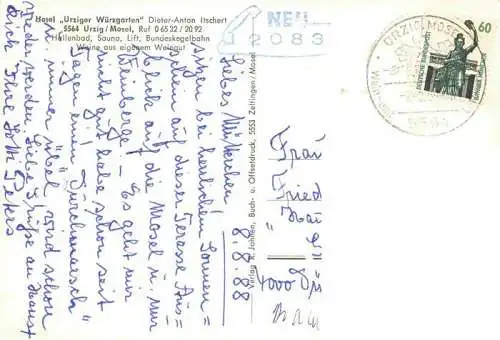 Hotel „Urziger Würzgarten" Dieter-Anton Itschert
5564 Urzig/Mosel, Ruf 0 65 32 / 20 92
Hallenbad, Sauna, Lift, Bundeskegelbahn
Weine aus eigenem Weingut
NEU
2083
ÜRZIG, MOSEL
5564
60
8.8.88
Liebes
sitzen bei herrlichem Sonnen=
auf dieser Terasse Aus=
blick auf die Mosel u. nur
Weinberge. - Es geht mir
nicht gut, habe schon seit
Tagen einen „Durchmarsch"
u. immer übel, wird schon
wieder werden. Liebe Grüße an
Dich Ihre Peters
Verlag K. Juhnen, Buch- u. Offsetdruck, 5553 Zeltingen/Mosel
Frau
Fried
4000